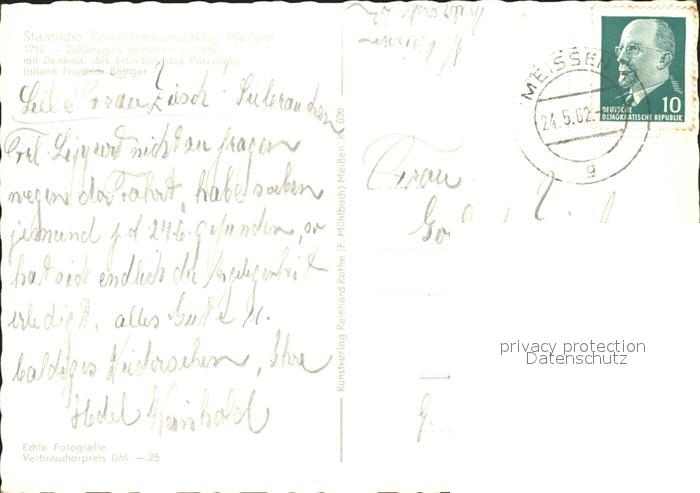 Staatliche Porzellanmanufaktur Meißen
1710 – 250jähriges Bestehen – 1960
mit Denkmal des Erfinders des Porzellans
Johann Friedrich Böttger
Liebe Frau
nicht zu fragen
wegen der Fahrt, habe soeben
jemand f. d. 24.6. gefunden, so
hat sich endlich die Angelegenheit
erledigt. alles Gute u.
baldiges Wiedersehen, Ihre
Weinhold
Echte Fotografie
Verbraucherpreis DM –.25
Kunstverlag Reinhard Rothe (F. Mühlbach) Meißen
MEISSEN
24.5.62.
g
DEUTSCHE
DEMOKRATISCHE REPUBLIK
10
Frau
G.
privacy protection
Datenschutz